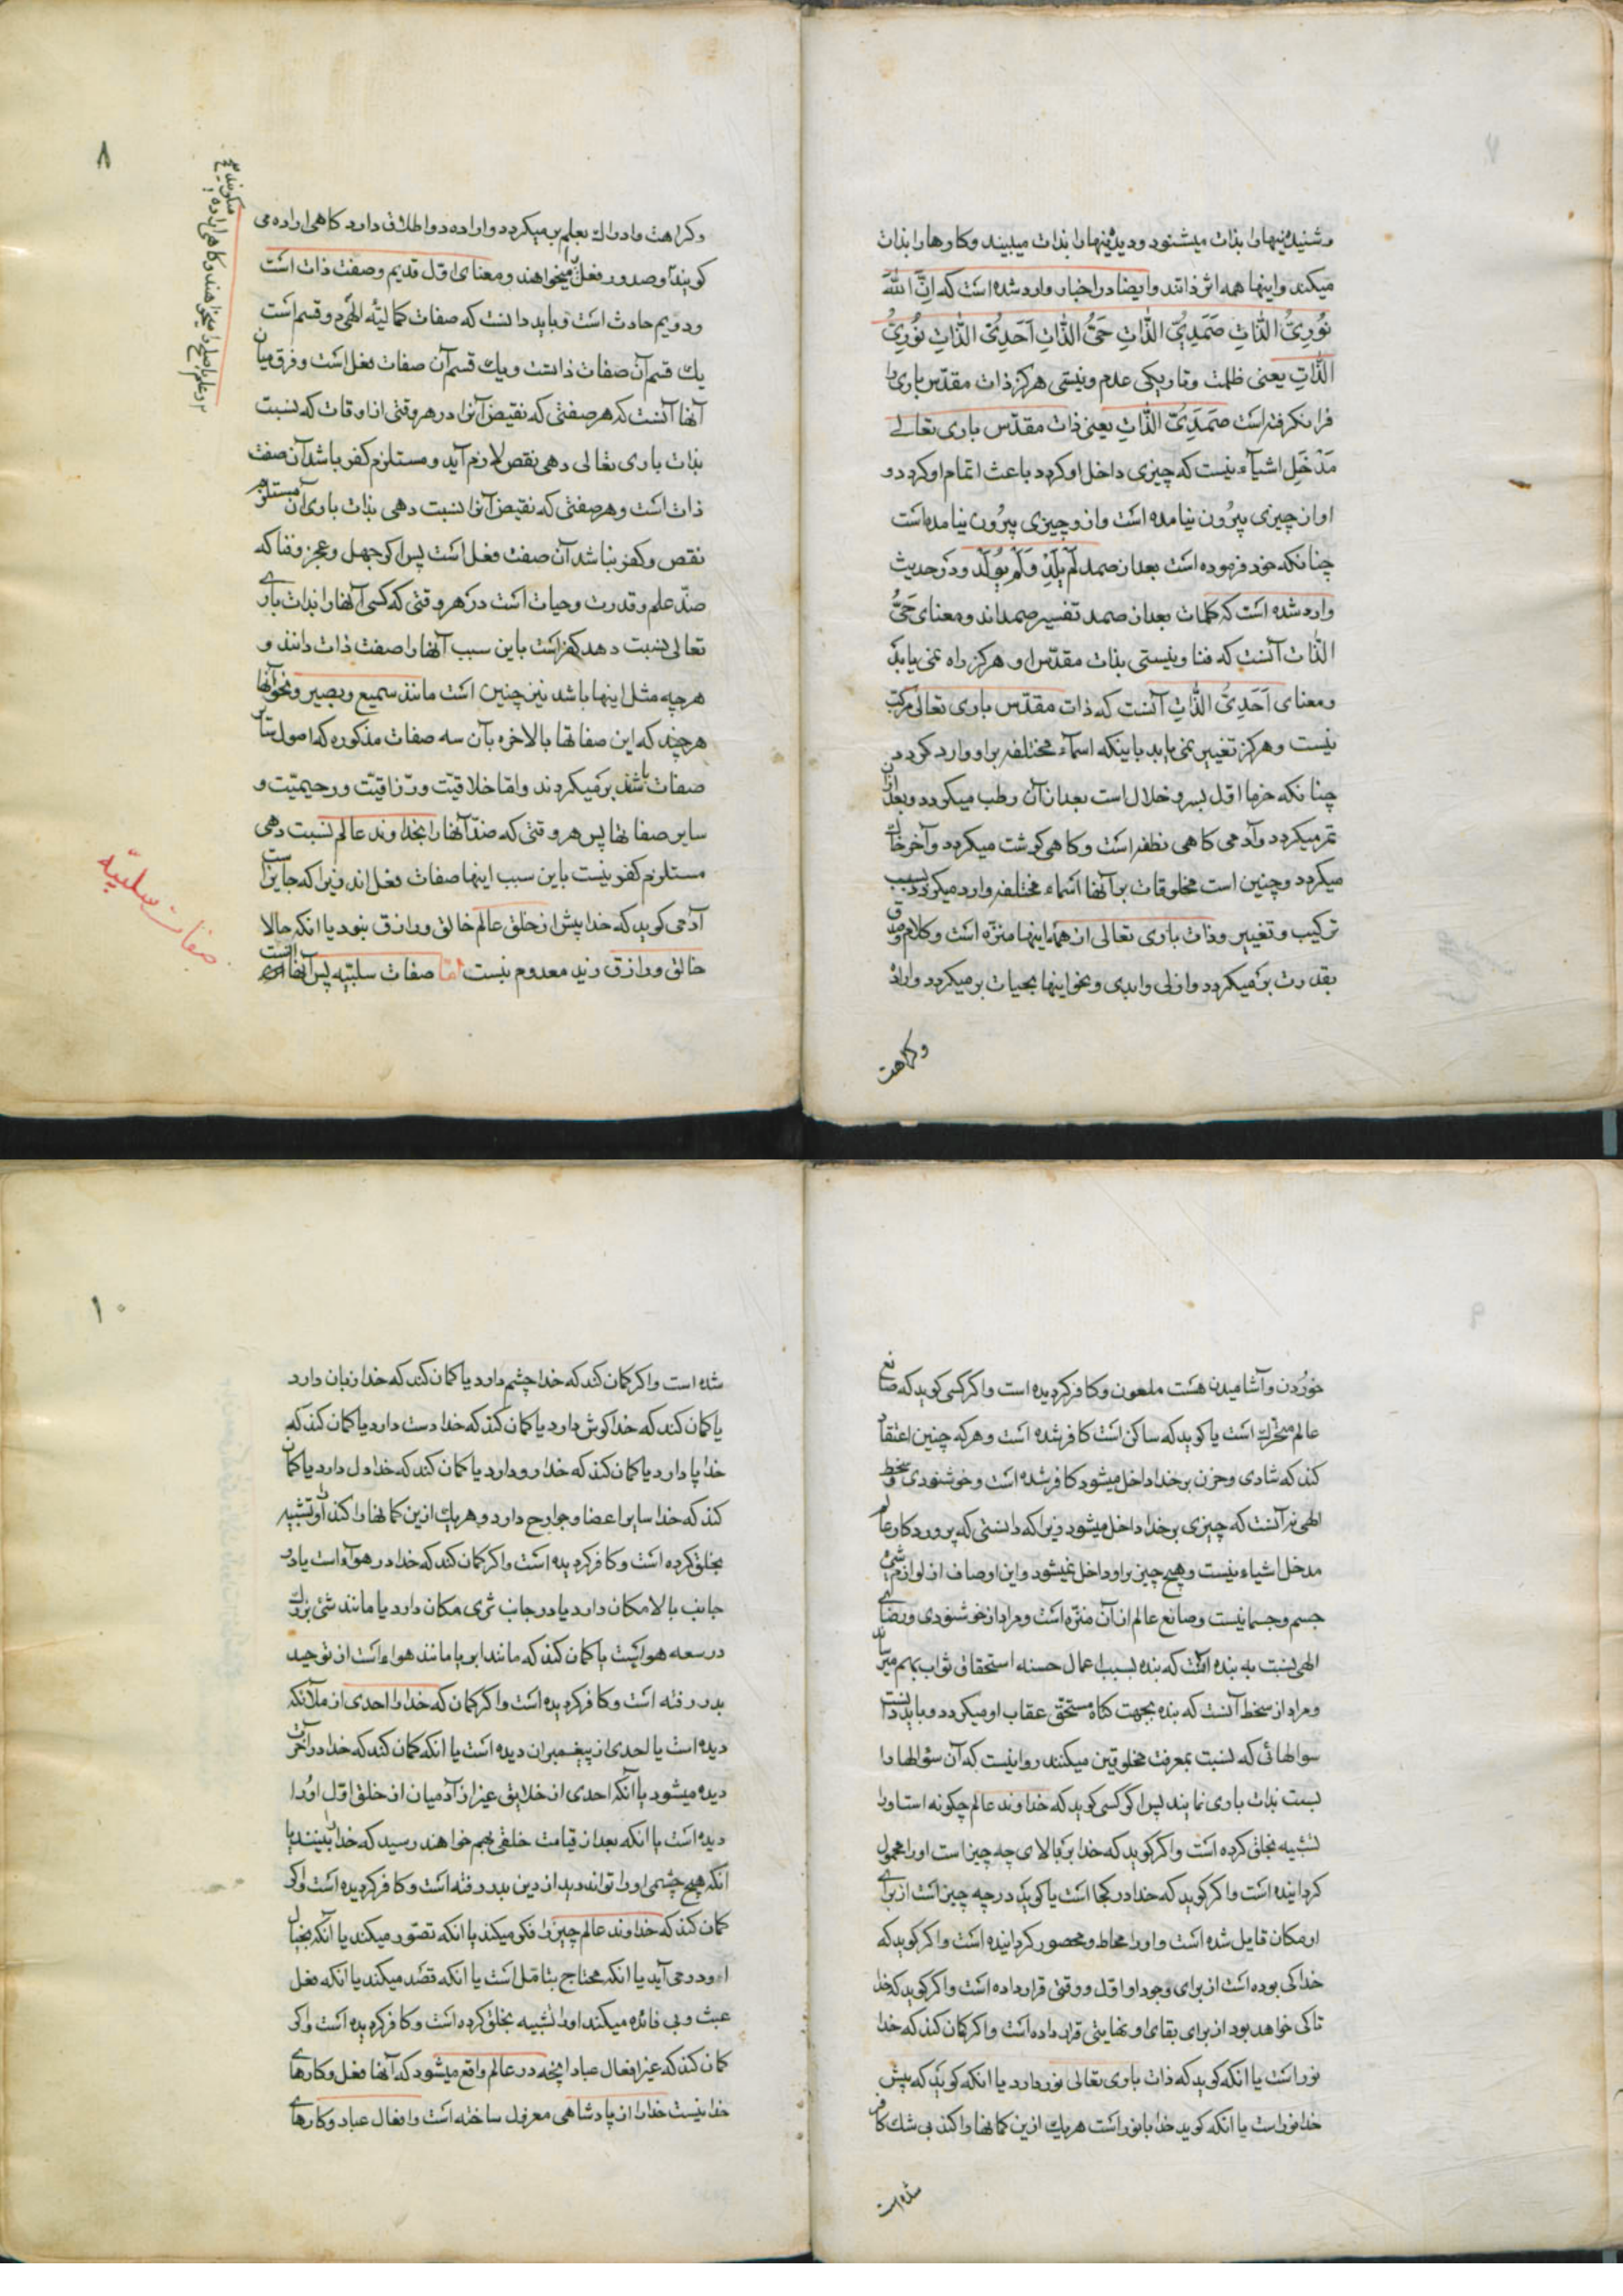 ۷
وشنیدنیها را بذات میشنود ودیدنیها را بذات میبیند وکارها را بذات
میکند واینها همه اثر ذاتند وایضا در اخبار وارد شده است که اِنَّ اللّٰهَ
نُورِیُّ الذّاتِ صَمَدِیُّ الذّاتِ حَیُّ الذّاتِ اَحَدِیُّ الذّاتِ نُورِیُّ
الذّاتِ یعنی ظلمت وتاریکی عدم ونیستی هرکز ذات مقدّس باری را
فرا نکرفته است صَمَدِیُّ الذّاتِ یعنی ذات مقدّس باری تعالی
مَدْخَلِ اشیآء نیست که چیزی داخل او کردد باعث اتمام او کردد و
او از چیزی بیرُون نیامده است واز و چیزی بیرُون نیامده است
چنانکه خود فرموده است بعد از صمد لَمْ یَلِدْ وَلَمْ یُولَدْ ودر حدیث
وارد شده است که کلمات بعد از صمد تفسیر صمداند ومعنای حَیُّ
الذّات آنست که فنا ونیستی بذات مقدّس او هرکز راه نمی یابد
ومعنای اَحَدِیُّ الذّاتِ آنست که ذات مقدّس باری تعالی مرکب
نیست وهرکز تغییر نمی یابد باینکه اسمآء مختلفه براو وارد کردد
چنانکه خرما اوّل بسر وخلال است بعد از آن رطب میکردد وبعد از آن
تمر میکردد وآدمی کاهی نطفه است وکاهی کوشت میکردد وآخر خاک
میکردد وچنین است مخلوقات بر آنها اسماء مختلفه وارد میکردد بسبب
ترکیب وتغییر وذات باری تعالی از همه اینها منزّه است وکلام وصدق
بقدرت برمیکردد وازلی وابدی ونحو اینها بحیات برمیکردد واراده
وکراهت
۸
وکراهت وادراک بعلم برمیکردد واراده دو اطلاق دارد کاهی اراده می
کویند وصدور فعل را میخواهند ومعنای اوّل قدیم وصفت ذات است
ودویم حادث است وباید دانست که صفات کمالیّه الٰهی دو قسم است
یک قسم آن صفات ذاتست ویک قسم آن صفات فعل است وفرق میان
آنها آنست که هر صفتی که نقیض آنرا در هر وقتی از اوقات که نسبت
بذات باری تعالی دهی نقص لازم آید ومستلزم کفر باشد آن صفت
ذات است وهر صفتی که نقیض آنرا نسبت دهی بذات باری آن مستلزم
نقص وکفر نباشد آن صفت فعل است پس اکر جهل وعجز وفنا که
ضدّ علم وقدرت وحیات است در هر وقتی که کسی آنها را بذات باری
تعالی نسبت دهد کفر است باین سبب آنها را صفت ذات دانند و
هر چه مثل اینها باشد نیز چنین است مانند سمیع وبصیر ونحو آنها
هر چند که این صفاتها بالاخره بآن سه صفات مذکوره که اصول سایر
صفات باشند برمیکردند وامّا خلاقیّت ورزاقیّت ورحیمیّت و
سایر صفاتها پس هر وقتی که ضدّ آنها را بخداوند عالم نسبت دهی
مستلزم کفر نیست باین سبب اینها صفات فعل اند زیرا که جایز است
آدمی کوید که خدا پیش از خلق عالم خالق ورازق نبود یا انکه حالا
خالق ورازق زید معدوم نیست امّا صفات سلبیّه پس آنها آنست
میکویند
وعلم باصلح را میخواهند وکاهی اراده
صفات سلبیّه
۹
خوردن وآشامیدن هست ملعون وکافر کردیده است واکر کسی کوید که صانع
عالم متحرّک است یا کوید که ساکن است کافر شده است وهرکه چنین اعتقاد
کند که شادی وحزن بر خدا داخل میشود کافر شده است وخوشنودی وسخط
الهی نه آنست که چیزی بر خدا داخل میشود زیرا که دانستی که پروردکار عالم
مدخل اشیاء نیست وهیچ چیز براو داخل نمیشود واین اوصاف از لوازم شیء
جسم وجسمانیست وصانع عالم از آن منزّه است ومراد از خوشنودی ورضای
الهی نسبت به بنده آنست که بنده بسبب اعمال حسنه استحقاق ثواب بهم میرساند
ومراد از سخط آنست که بنده بجهت کناه مستحق عقاب او میکردد وباید دانست
سوالهائی که نسبت بمعرفت مخلوقین میکنند روا نیست که آن سؤالها را
نسبت بذات باری نمایند پس اکر کسی کوید که خداوند عالم چکونه است اورا
تشبیه بخلق کرده است واکر کوید که خدا بر بالای چه چیز است اورا محمول
کردانیده است واکر کوید که خدا در کجا است یا کوید در چه چیز است از برای
او مکان قایل شده است واورا محاط ومحصور کردانیده است واکر کوید که
خدا کی بوده است از برای وجود او اوّل ووقتی قرار داده است واکر کوید که خدا
تا کی خواهد بود از برای بقای او نهایتی قرار داده است واکر کمان کند که خدا
نور است یا انکه کوید که ذات باری تعالی نور دارد یا انکه کوید که پیش
خدا نور است یا انکه کوید خدا با نور است هر یک ازین کمانها را کند بی شک کافر
شده است
۱۰
شده است واکر کمان کند که خدا چشم دارد یا کمان کند که خدا زبان دارد
یا کمان کند که خدا کوش دارد یا کمان کند که خدا دست دارد یا کمان کند که
خدا پا دارد یا کمان کند که خدا رو دارد یا کمان کند که خدا دل دارد یا کمان
کند که خدا سایر اعضا وجوارح دارد وهر یک ازین کمانها را کند او را تشبیه
بخلق کرده است وکافر کردیده است واکر کمان کند که خدا در هوآء است یا در
جانب بالا مکان دارد یا در جانب ثری مکان دارد یا مانند شیء بزرک
در سعه هوا است یا کمان کند که مانند ابر یا مانند هواء است از توحید
بدر رفته است وکافر کردیده است واکر کمان که خدا را احدی از ملآئکه
دیده است یا احدی از پیغمبران دیده است یا انکه کمان کند که خدا در آخرت
دیده میشود یا آنکه احدی از خلایق غیر از آدمیان از خلق اوّل اورا
دیده است یا انکه بعد از قیامت خلقی بهم خواهند رسید که خدا را ببینند یا
انکه هیچ چشمی اورا تواند دید از دین بدر رفته است وکافر کردیده است واکر
کمان کند که خداوند عالم چیز را فکر میکند یا انکه تصوّر میکند یا آنکه بخیال
او در می آید یا انکه محتاج بتامّل است یا انکه قصد میکند یا انکه فعل
عبث وبی فائده میکند اورا تشبیه بخلق کرده است وکافر کردیده است واکر
کمان کند که غیر افعال عباد انچه در عالم واقع میشود که آنها فعل وکارهای
خدا نیست خدا را از پادشاهی معزول ساخته است وافعال عباد وکارهای